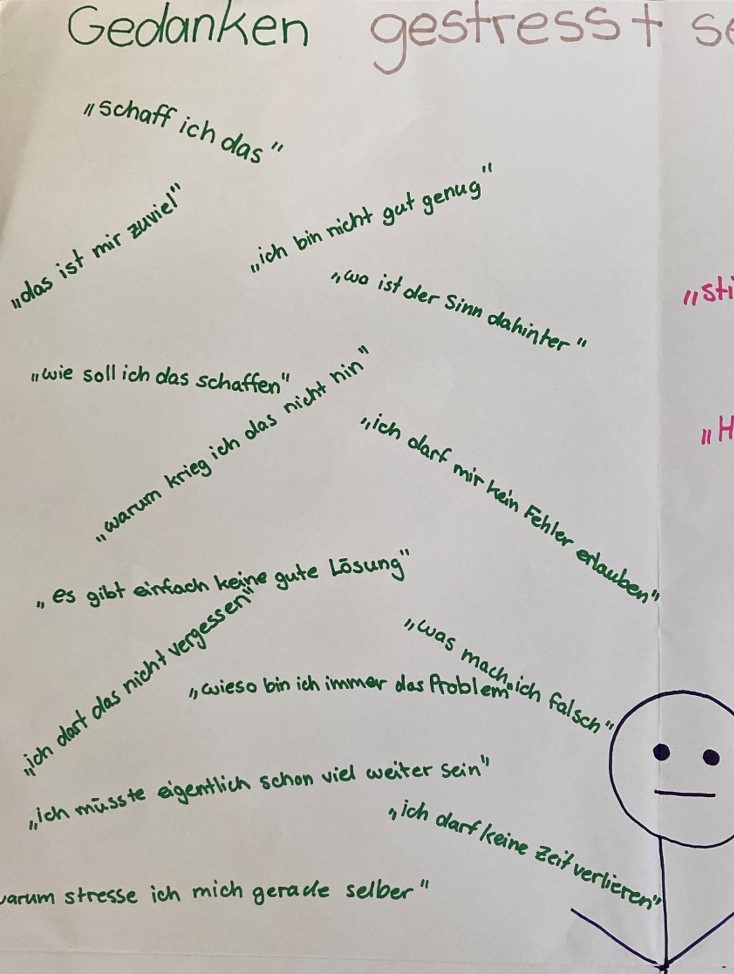 Gedanken gestresst se
„schaff ich das"
„das ist mir zuviel"
„ich bin nicht gut genug"
„wo ist der Sinn dahinter"
„sti
„wie soll ich das schaffen"
„warum krieg ich das nicht hin"
„H
„ich darf mir kein Fehler erlauben"
„es gibt einfach keine gute Lösung"
„ich darf das nicht vergessen"
„was mach ich falsch"
„wieso bin ich immer das Problem"
„ich müsste eigentlich schon viel weiter sein"
„ich darf keine Zeit verlieren"
warum stresse ich mich gerade selber"